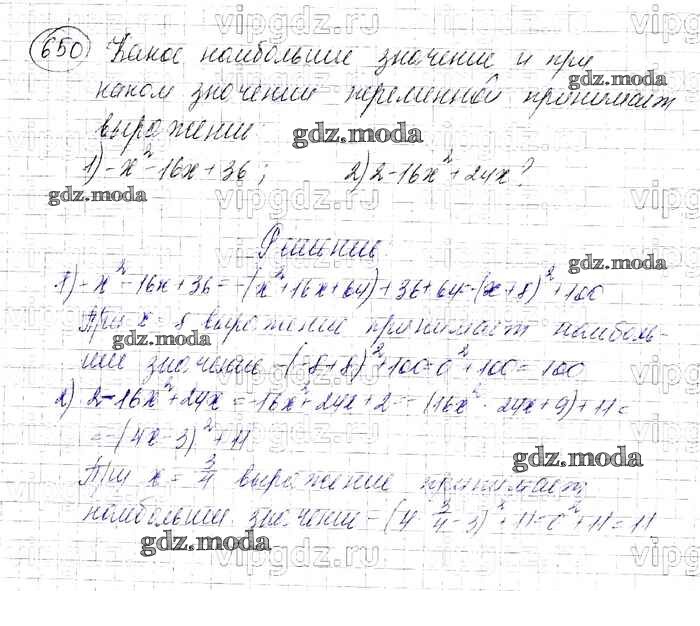 650 Какое наибольшее значение и при
каком значении переменной принимает
выражение
1) -x² - 16x + 36; 2) 2 - 16x² + 24x?
Решение
1) -x² - 16x + 36 = -(x² + 16x + 64) + 36 + 64 = -(x + 8)² + 100
При x = 8 выражение принимает наиболь-
шее значение -(-8+8)² + 100 = 0² + 100 = 100
2) 2 - 16x² + 24x = -16x² + 24x + 2 = -(16x² - 24x + 9) + 11 =
= -(4x - 3)² + 11
При x = 3/4 выражение принимает
наибольшее значение -(4 · 3/4 - 3)² + 11 = 0² + 11 = 11
vipgdz.ru
gdz.moda